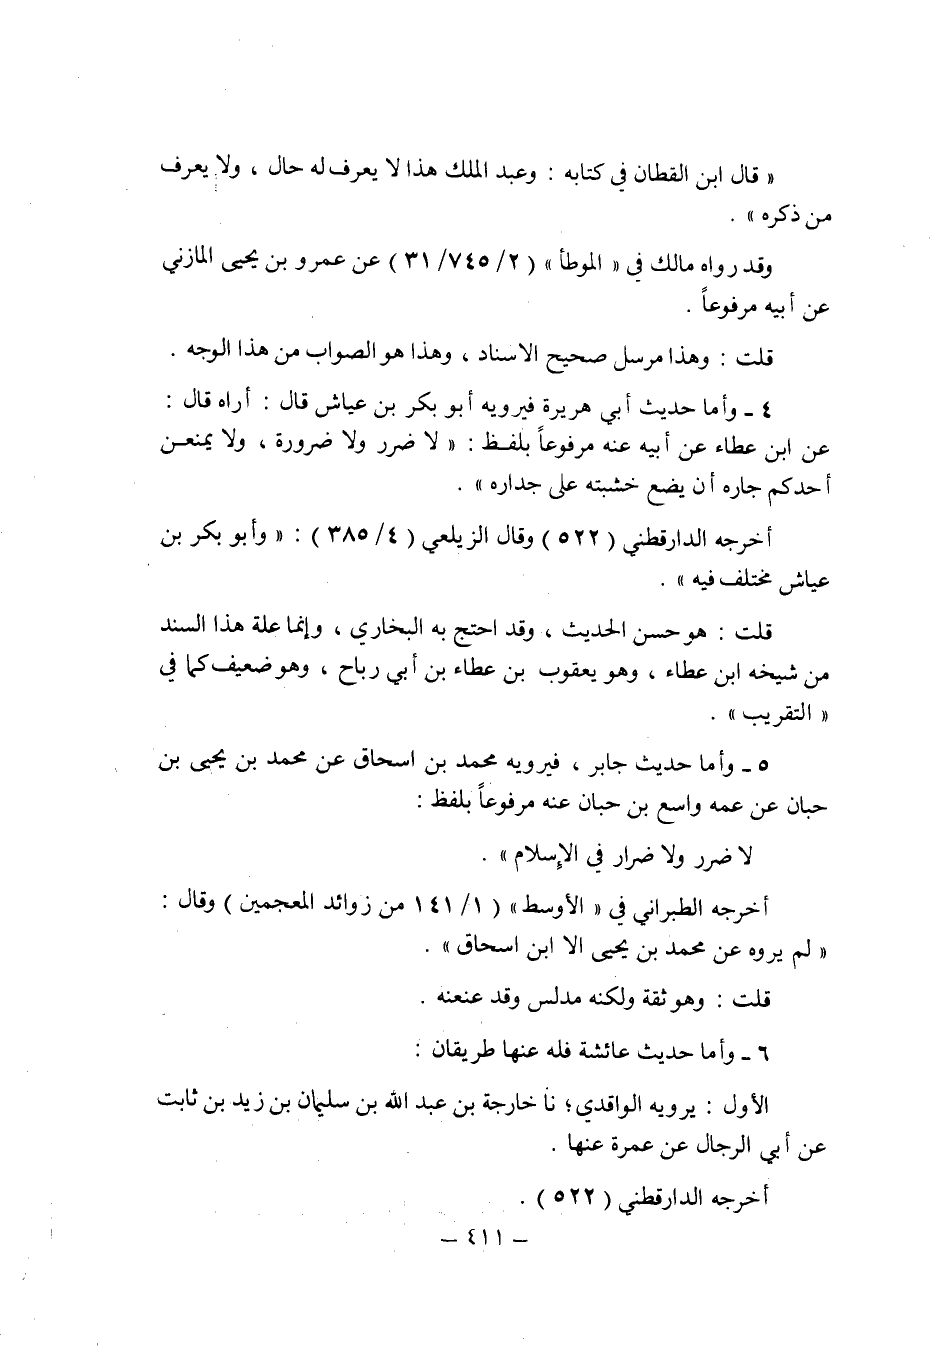 « قال ابن القطان في كتابه : وعبد الملك هذا لا يعرف له حال ، ولا يعرف
من ذكره » .
وقد رواه مالك في « الموطأ » ( ٢/ ٧٤٥/ ٣١ ) عن عمرو بن يحيى المازني
عن أبيه مرفوعاً .
قلت : وهذا مرسل صحيح الاسناد ، وهذا هو الصواب من هذا الوجه .
٤ ـ وأما حديث أبي هريرة فيرويه أبو بكر بن عياش قال : أراه قال :
عن ابن عطاء عن أبيه عنه مرفوعاً بلفظ : « لا ضرر ولا ضرورة ، ولا يمنعن
أحدكم جاره أن يضع خشبته على جداره » .
أخرجه الدارقطني ( ٥٢٢ ) وقال الزيلعي ( ٤/ ٣٨٥ ) : « وأبو بكر بن
عياش مختلف فيه » .
قلت : هو حسن الحديث ، وقد احتج به البخاري ، وإنما علة هذا السند
من شيخه ابن عطاء ، وهو يعقوب بن عطاء بن أبي رباح ، وهو ضعيف كما في
« التقريب » .
٥ ـ وأما حديث جابر ، فيرويه محمد بن اسحاق عن محمد بن يحيى بن
حبان عن عمه واسع بن حبان عنه مرفوعاً بلفظ :
لا ضرر ولا ضرار في الإسلام » .
أخرجه الطبراني في « الأوسط » ( ١/ ١٤١ من زوائد المعجمين ) وقال :
« لم يروه عن محمد بن يحيى الا ابن اسحاق » .
قلت : وهو ثقة ولكنه مدلس وقد عنعنه .
٦ ـ وأما حديث عائشة فله عنها طريقان :
الأول : يرويه الواقدي؛ نا خارجة بن عبد الله بن سليمان بن زيد بن ثابت
عن أبي الرجال عن عمرة عنها .
أخرجه الدارقطني ( ٥٢٢ ) .
– ٤١١ –